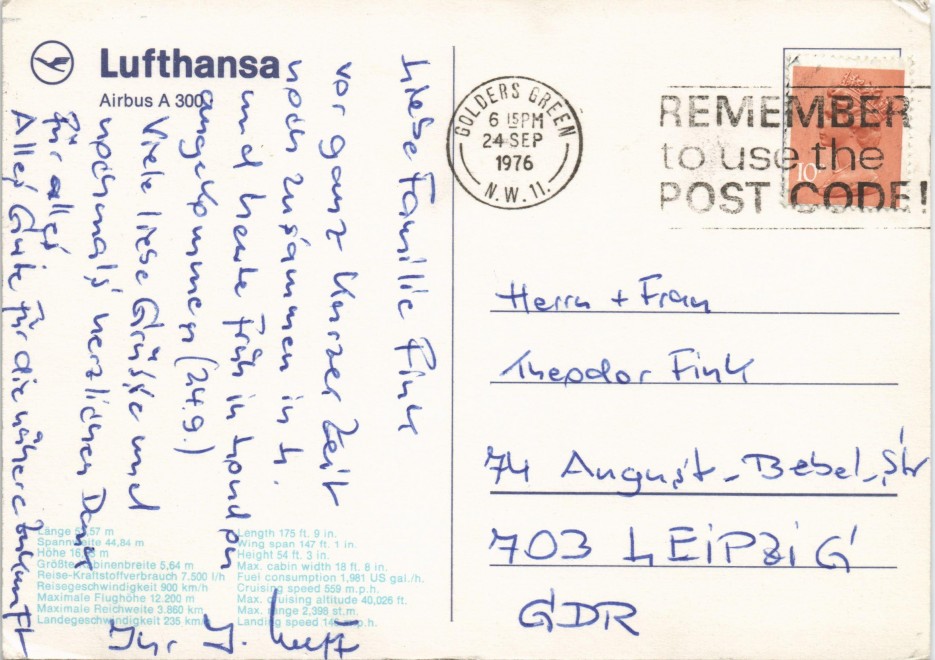 Lufthansa
Airbus A 300
Liebe Familie Fink
vor ganz kurzer Zeit
noch zusammen in L.
und heute früh in London
angekommen (24.9.)
Viele liebe Grüsse und
nochmals herzlichen Dank
für alles
Alles Gute für die nähere Zukunft
Ihr
GOLDERS GREEN
6 15PM
24 SEP
1976
N.W. 11.
REMEMBER
to use the
POST CODE!
10
Herrn + Frau
Theodor Fink
74 August-Bebel-Str
703 LEIPZIG
GDR
Länge 53,57 m
Spannweite 44,84 m
Höhe m
Größte Kabinenbreite 5,64 m
Reise-Kraftstoffverbrauch 7.500 l/h
Reisegeschwindigkeit 900 km/h
Maximale Flughöhe 12.200 m
Maximale Reichweite 3.860 km
Landegeschwindigkeit 235 km/h
Length 175 ft. 9 in.
Wing span 147 ft. 1 in.
Height 54 ft. 3 in.
Max. cabin width 18 ft. 8 in.
Fuel consumption 1,981 US gal./h.
Cruising speed 559 m.p.h.
Max. cruising altitude 40,026 ft.
Max. range 2,398 st.m.
Landing speed m.p.h.